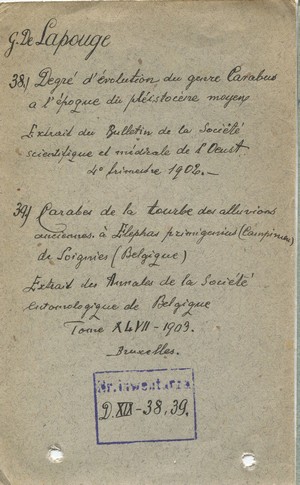 G. De Lapouge
38.) Degré d'évolution du genre Carabus
a l'époque du pléistocène moyen
Extrait du Bulletin de la Société
scientifique et médicale de l'Ouest
4e trimestre 1902.—
39) Carabes de la tourbe des alluvions
anciennes à Elephas primigenius (Campinien)
de Soignies (Belgique)
Extrait des Annales de la Société
entomologique de Belgique
Tome XLVII - 1903.
Bruxelles.
Nr. inwentarza
D. XIX - 38, 39.